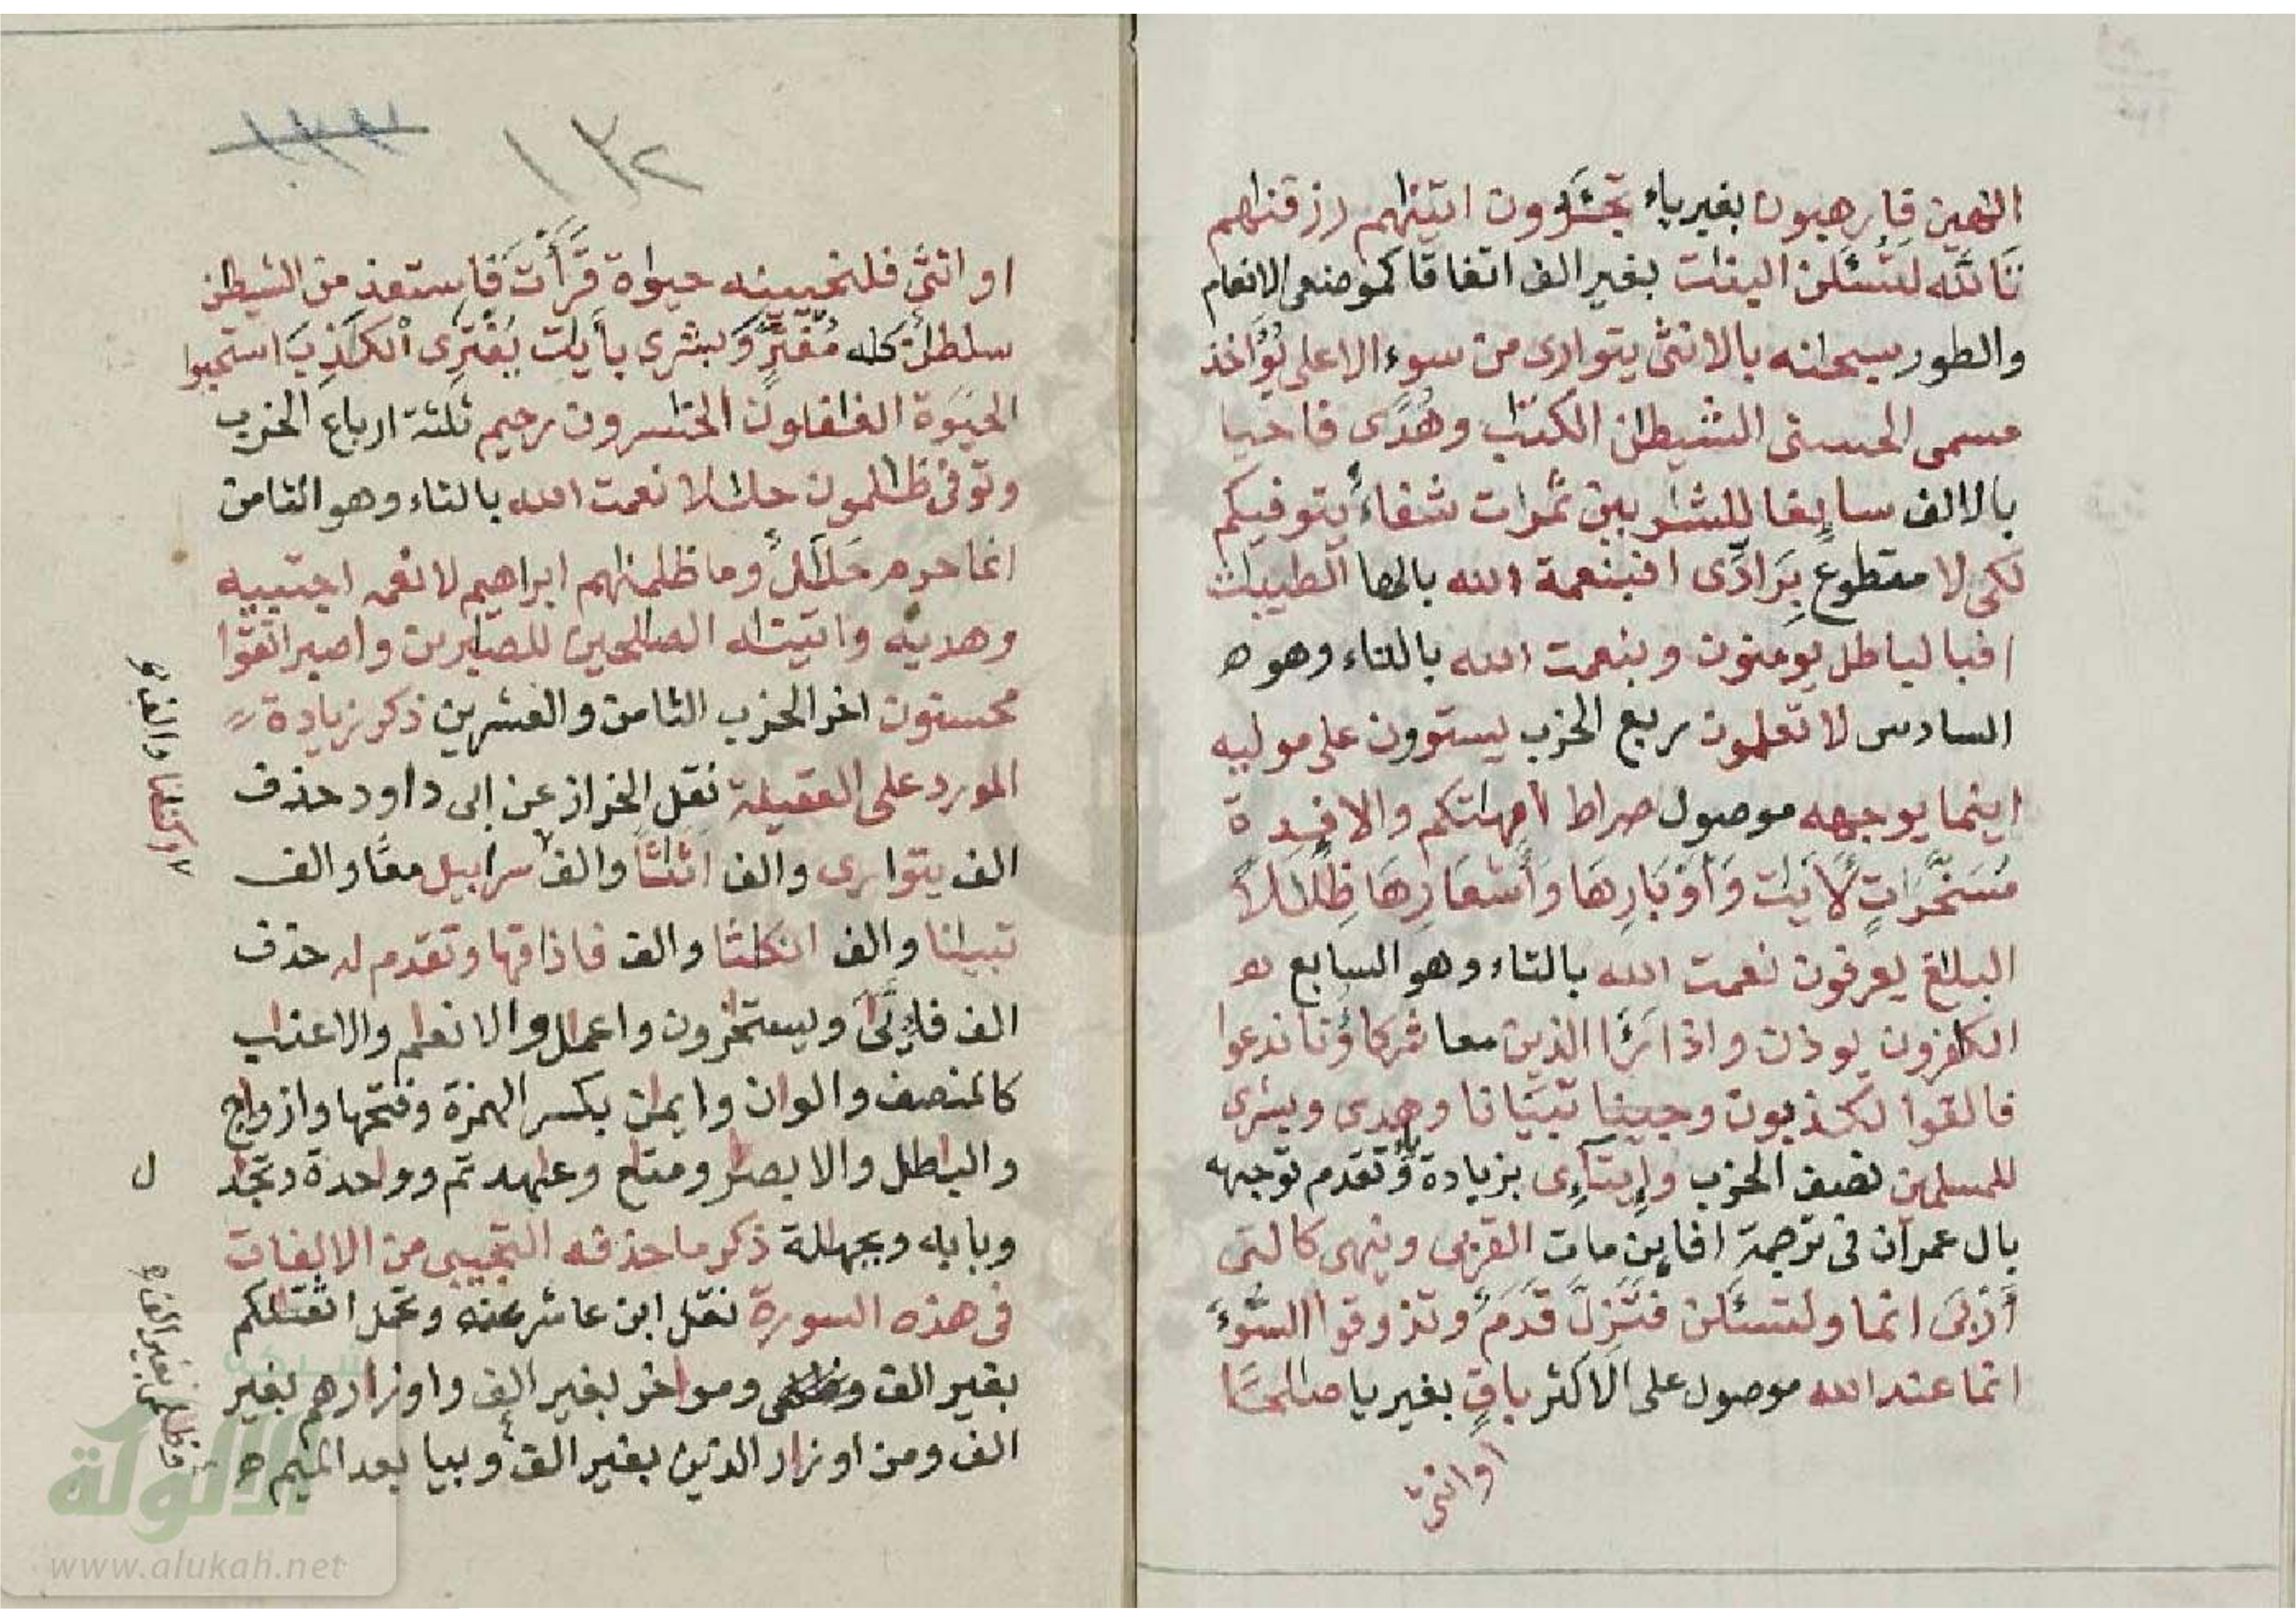 الهين فارهبون بغير ياء تجئرون اتينهم رزقنهم
تالله لتسئلن البنت بغير الف اتفاقا كموضعي الانعام
والطور سبحنه بالانثى يتوارى من سوء الاعلى يؤاخذ
مسمى الحسنى الشيطن الكتب وهدى فاحيا
بالالف سايغا للشربين ثمرات شفاء يتوفيكم
لكى لا مقطوع برادى افبنعمة الله بالها الطيبت
افبالباطل يومنون وبنعمت الله بالتاء وهو ه
السادس لا تعلمون ربع الحزب يستوون على موليه
اينما يوجهه موصول صراط امهتكم والافدة
مسخرات لأيت وأوبارها وأشعارها ظللا
البلغ يعرفون نعمت الله بالتاء وهو السابع هو
الكفرون يوذن واذا رءا الذين معا شركاؤنا ندعوا
فالقوا لكذبون وجينا تبيانا وهدى وبشرى
للمسلمين نصف الحزب وإيتاءى بزيادة ياء وتقدم توجيهه
بال عمران في ترجمة افاين مات القربى وينهى كالتى
أربى انما ولتسئلن فتزل قدم وتذوقوا السوء
انما عند الله موصول على الاكثر باق بغير يا صالحا
او انثى
١٣٢
او انثى فلنحيينه حيوة قرأت فاستعذ من الشيطن
سلطن كله مفتر وبشرى بأيت يفترى الكذب استحبوا
الحيوة الغفلون الخسرون رحيم ثلثة ارباع الحزب
وتوفى ظلمون حللا نعمت الله بالتاء وهو الثامن
انما حرم حلل وما ظلمنهم ابراهيم لانعمه اجتبيه
وهديه واتينه الصلحين للصبرين واصبر اتقوا
محسنون اخر الحزب الثامن والعشرين ذكر زيادة
المورد على العقيلة نقل الخراز عن ابى داود حذف
الف يتوارى والف اثثا والف سرابيل معا والف
تبينا والف انكثا والف فاذاقها وتقدم له حذف
الف فايى ويستخرون واعمل والانعم والاعنب
كالمنصف والوان وايمن بكسر الهمزة وفتحها وازوج
والبطل والابصر ومتع وعهد ثم ووحدة وتجد
وبايه وبجهلة ذكر ما حذفه التجيبى من الالفات
في هذه السورة نقل ابن عاشر عنه وتحمل اثقلكم
بغير الف ومواخر بغير الف واوزارهم بغير
الف ومن اوزار الذين بغير الف وبيا بعد الميم ه
ل